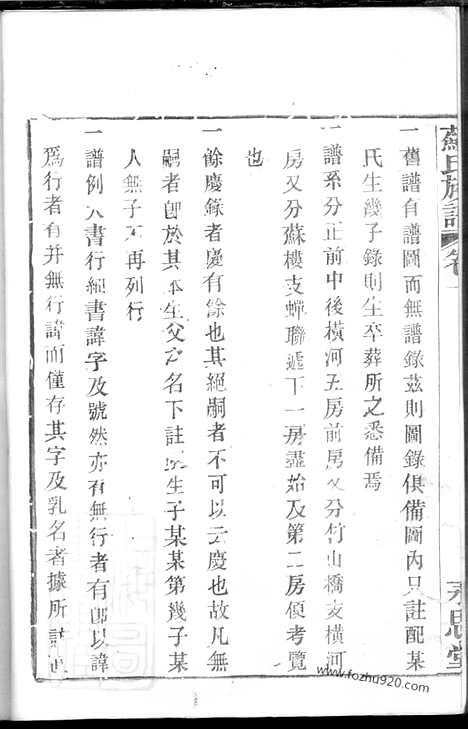 蘇氏族譜 卷一
永思堂
一舊譜有譜圖而無譜錄茲則圖錄俱備圖內只註配某
氏生幾子錄則生卒葬所之悉備焉
一譜系分正前中後橫河五房前房又分竹山橋支橫河
房又分蘇樓支蟬聯遞下一房盡始及第二房便考覽
也
一餘慶錄者慶有餘也其絕嗣者不可以云慶也故凡無
嗣者即於其本生父之名下註生子某某第幾子某
人無子不再列行
一譜例大書行細書諱字及號然亦有無行者有即以諱
爲行者有并無行諱而僅存其字及乳名者據所註正
www.fozhu920.com